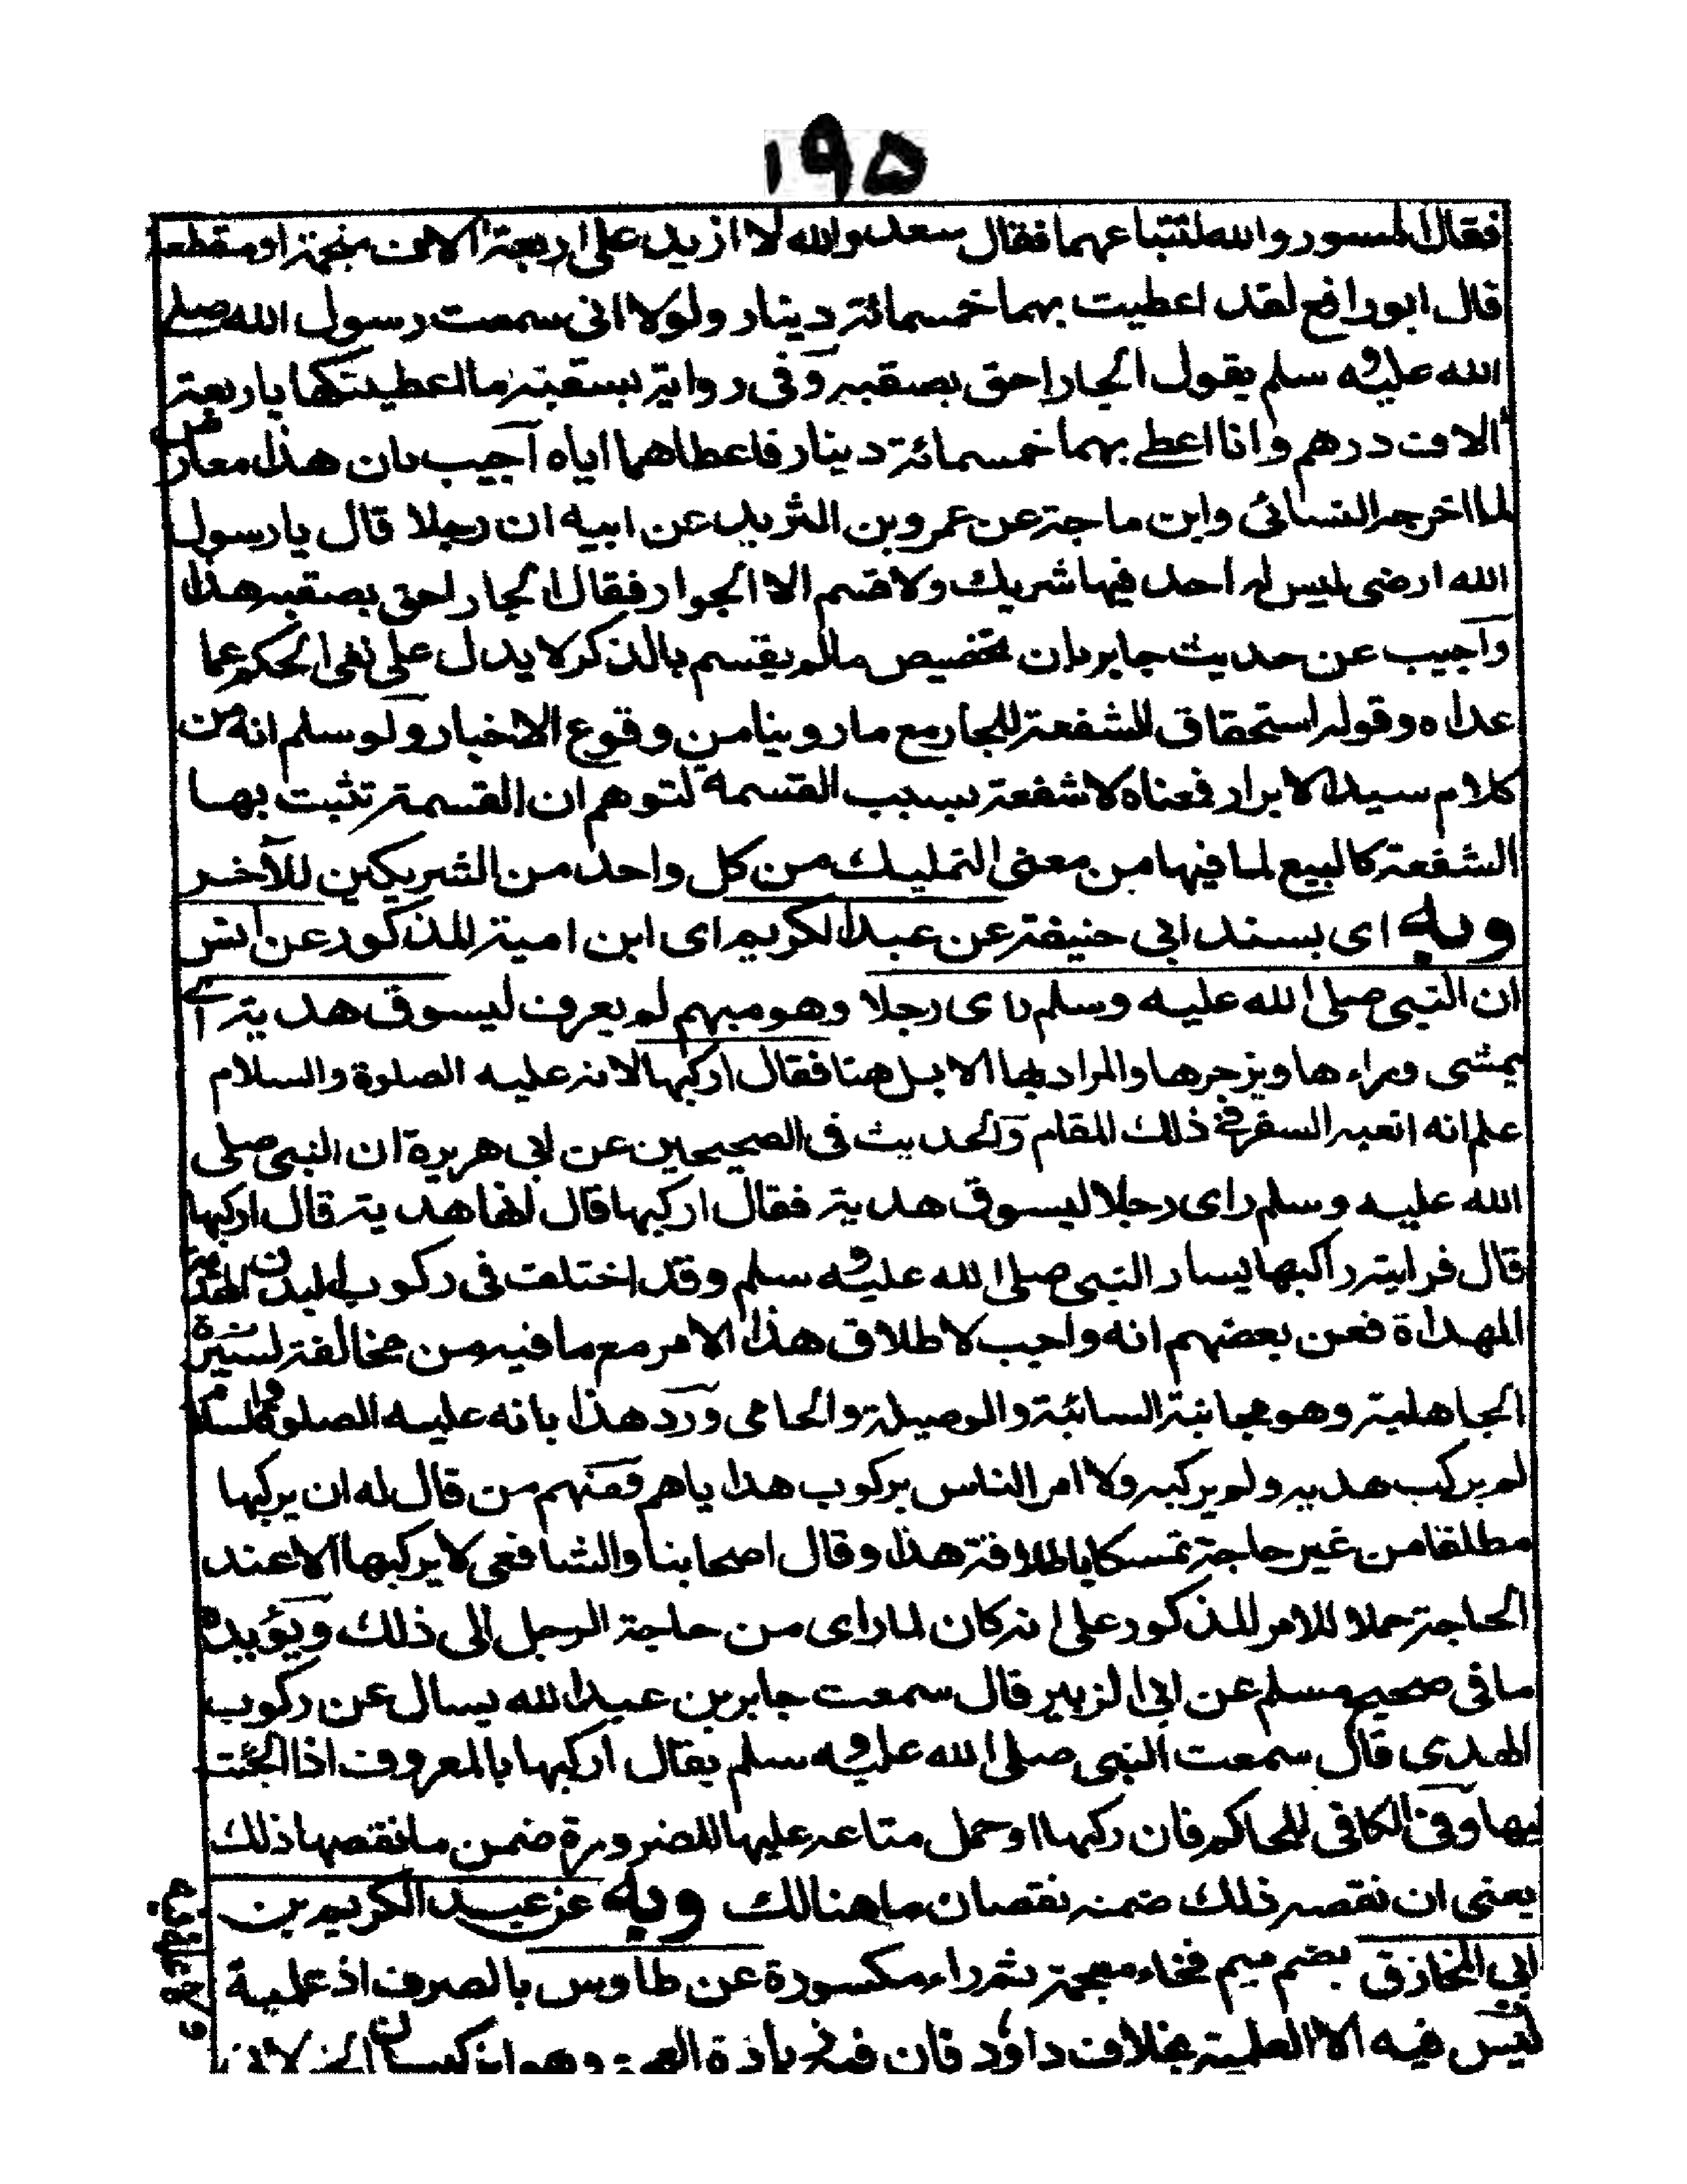 ۱۹۵
فقال المسور والله لتبتاعهما فقال سعد والله لا ازيد على اربعة الاف منجمة او مقطعة
قال ابو رافع لقد اعطيت بهما خمسمائة دينار ولولا انى سمعت رسول الله صلى
الله عليه وسلم يقول الجار احق بصقبه وفى رواية بسقبه ما اعطيتكها باربعة
الاف درهم وانا اعطى بهما خمسمائة دينار فاعطاهما اياه اجيب بان هذا معارض
لما اخرجه النسائى وابن ماجة عن عمرو بن الشريد عن ابيه ان رجلا قال يا رسول
الله ارضى ليس لاحد فيها شريك ولا قسم الا الجوار فقال الجار احق بصقبه هذا
واجيب عن حديث جابر بان تخصيص ما لم يقسم بالذكر لا يدل على نفى الحكم عما
عداه وقوله استحقاق الشفعة للجار مع ما روينا من وقوع الاخبار ولو سلم انه من
كلام سيد الابرار فمعناه لا شفعة بسبب القسمة لتوهم ان القسمة تثبت بها
الشفعة كالبيع لما فيها من معنى التمليك من كل واحد من الشريكين للآخر
وبه اى بسند ابى حنيفة عن عبد الكريم اى ابن امية المذكور عن انس
ان النبى صلى الله عليه وسلم راى رجلا وهو مبهم لم يعرف ليسوق هدية اى
يمشى وراءها ويزجرها والمراد بها الابل هنا فقال اركبها لانه عليه الصلوة والسلام
علم انه اتعبه السفر فى ذلك المقام والحديث فى الصحيحين عن ابى هريرة ان النبى صلى
الله عليه وسلم راى رجلا ليسوق هدية فقال اركبها قال انها هدية قال اركبها
قال فرايته راكبها يساير النبى صلى الله عليه وسلم وقد اختلف فى ركوب البدن
المهداة فعن بعضهم انه واجب لاطلاق هذا الامر مع ما فيه من مخالفة لسيرة
الجاهلية وهو مجانبة السائبة والوصيلة والحامى ورد هذا بانه عليه الصلوة والسلام
لم يركب هديه ولم يركبه ولا امر الناس بركوب هداياهم فمنهم من قال له ان يركبها
مطلقا من غير حاجة تمسكا باطلاقه هذا وقال اصحابنا والشافعى لا يركبها الا عند
الحاجة حملا للامر المذكور على انه كان لما راى من حاجة الرجل الى ذلك ويؤيده
ما فى صحيح مسلم عن ابى الزبير قال سمعت جابر بن عبد الله يسال عن ركوب
الهدى قال سمعت النبى صلى الله عليه وسلم يقال اركبها بالمعروف اذا الجئت
اليها وفى الكافى للحاكم فان ركبها او حمل متاعه عليها للضرورة ضمن ما نقصها ذلك
يعنى ان نقصه ذلك ضمنه نقصان ما هنالك وبه عن عبد الكريم بن
ابى المخارق بضم ميم فخاء معجمة ثم راء مكسورة عن طاوس بالصرف اذ علمية
ليس فيه الا العلمية بخلاف داود فان فيه زيادة العجمة وهو ابن كيسان